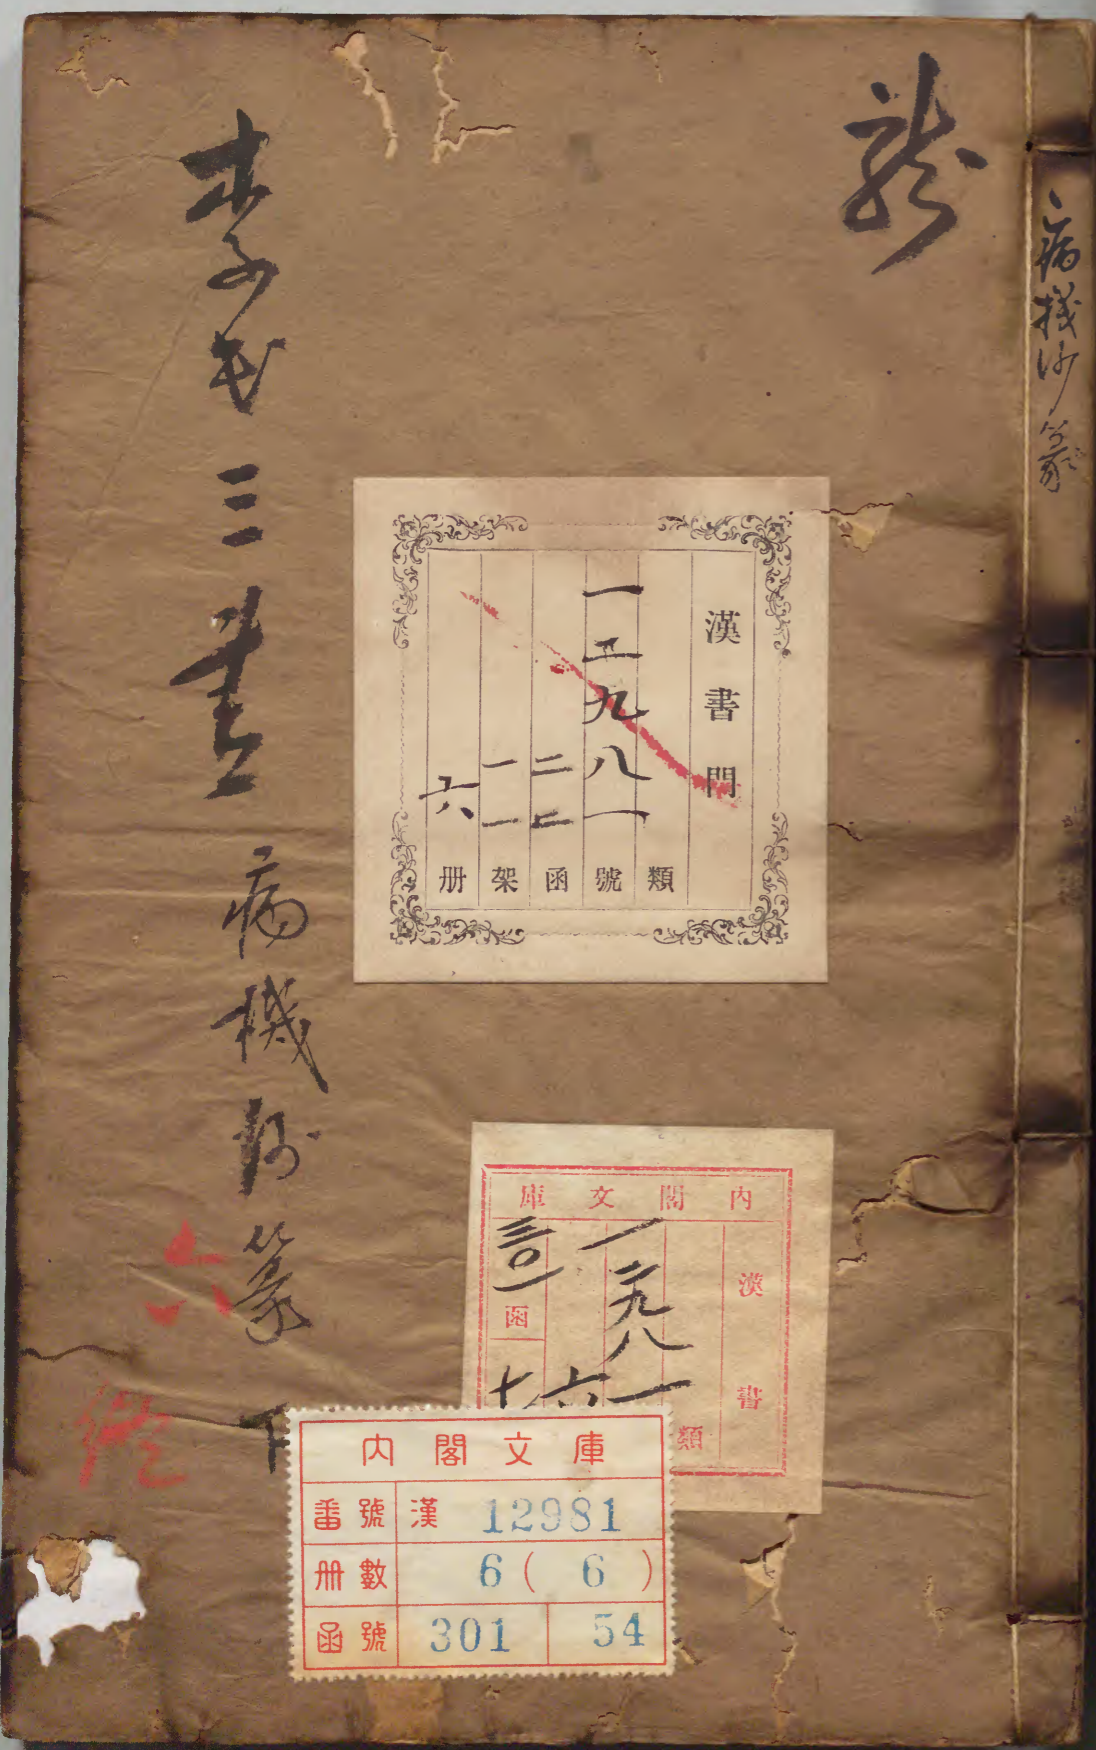 病機沙篆
龍
李氏三書 病機沙篆 下
六
終
漢書門
類
一二九八一號
二二函
一一架
六册
內閣文庫
漢書
類
一二九八一
六
三〇一函
內閣文庫
番號 漢 12981
册數 6(6)
函號 301 54